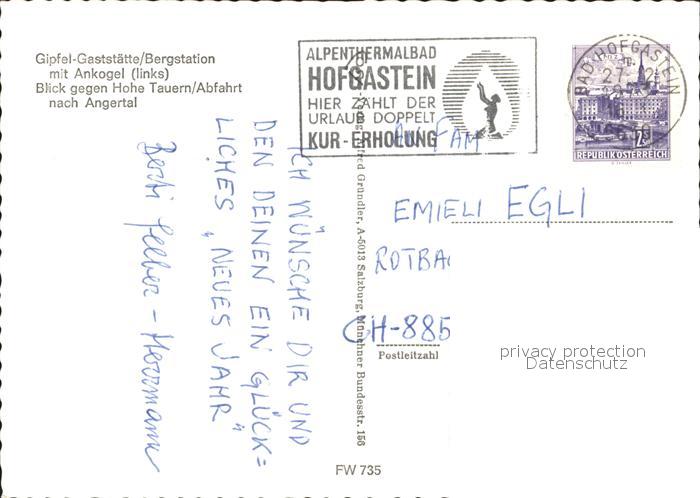 Gipfel-Gaststätte/Bergstation
mit Ankogel (links)
Blick gegen Hohe Tauern/Abfahrt
nach Angertal
ALPENTHERMALBAD
HOFGASTEIN
HIER ZÄHLT DER
URLAUB DOPPELT
KUR-ERHOLUNG
BAD HOFGASTEIN
REPUBLIK ÖSTERREICH
AN FAM
EMIELI EGLI
ROTBA
CH-885
Postleitzahl
privacy protection
Datenschutz
Alfred Gründler, A-5013 Salzburg, Münchner Bundesstr. 156
ICH WÜNSCHE DIR UND
DEN DEINEN EIN GLÜCK=
LICHES „NEUES JAHR"
FW 735